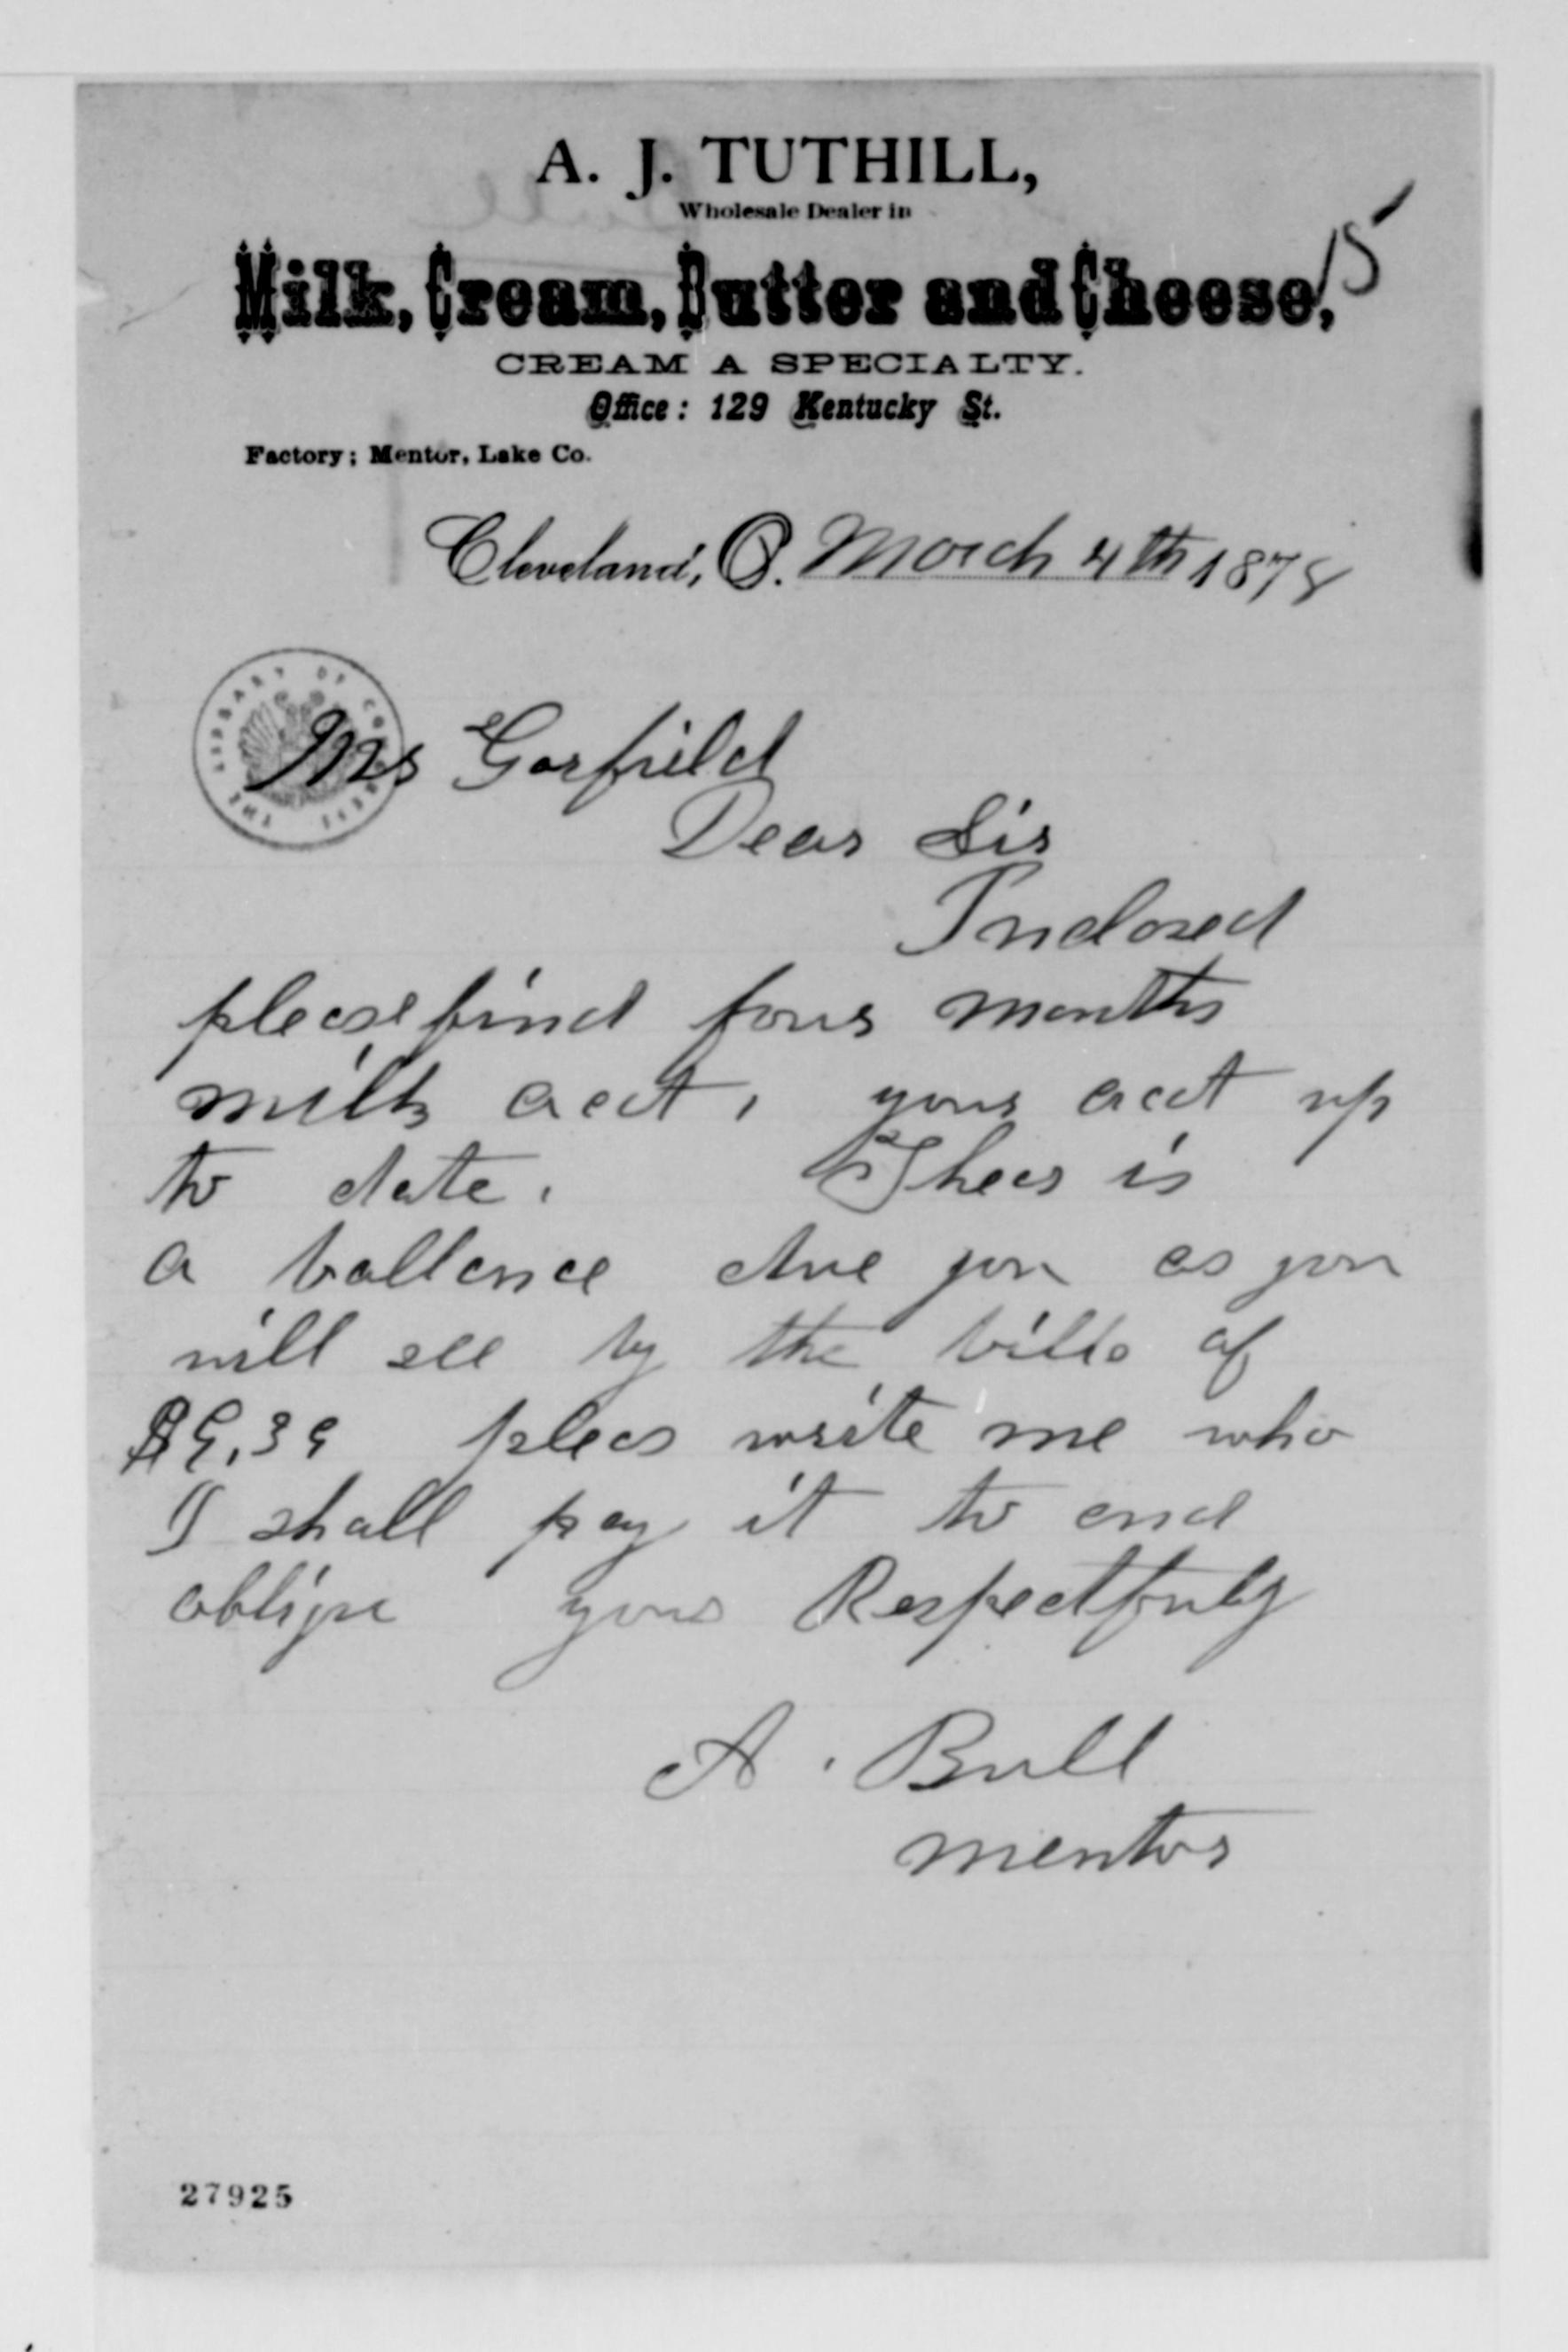 A. J. TUTHILL,
Wholesale Dealer in
Milk, Cream, Butter and Cheese,
15
CREAM A SPECIALTY.
Office: 129 Kentucky St.
Factory; Mentor, Lake Co.
Cleveland, O. March 4th 1878
THE LIBRARY OF CONGRESS
Mr Garfield
Dear Sir
Inclosed
please find four months
milk acct, your acct up
to date. Thear is
a ballence due you as you
will see by the bills of
$9.39 pleas write me who
I shall pay it to and
oblige yours Respectfuly
A. Bull
Mentor
27925